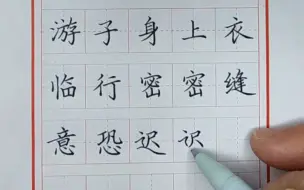 游子身上衣
临行密密缝
意恐迟识